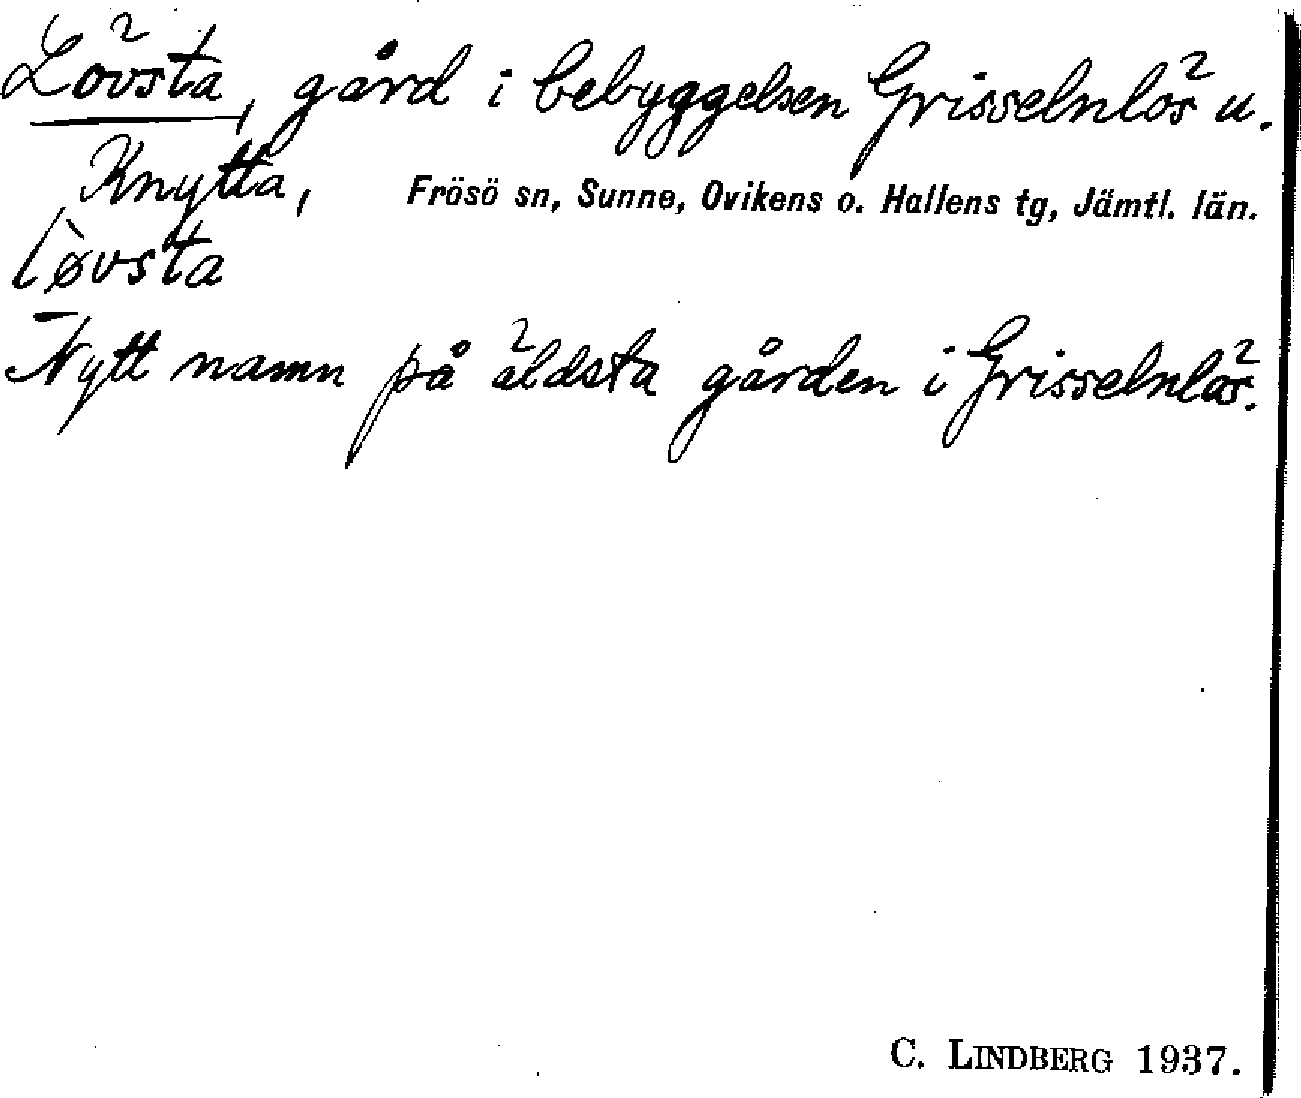 Lövsta, gård i bebyggelsen Grisselnlös u.
Knytta, Frösö sn, Sunne, Ovikens o. Hallens tg, Jämtl. län.
lø̀vsta
Nytt namn på äldsta gården i Grisselnlös.
C. LINDBERG 1937.